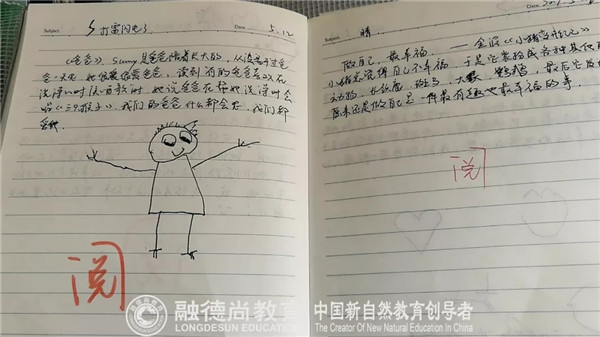 Subject
打雷闪电了
Date
5.12
《爸爸》 Sunny是爸爸陪着长大的，从没离开过爸
爸一天 她很爱很爱爸爸，读到有的爸爸喜欢在
洗澡时候唱歌时 她说爸爸在帮她洗澡时会
唱《三只猴子》，我们的爸爸什么都会干，我们都
爱他
阅
Subject
晴
Date
做自己，最幸福 —— 念《小猪变形记》
小猪总觉得自己不幸福 于是它装扮成各种其他的
动物，长颈鹿，斑马，大象，鹦鹉，最后它发现
原来还是做自己是一件最有趣也最幸福的事
阅
融德尚教育
LONGDESUN EDUCATION
中国新自然教育创导者
The Creator Of New Natural Education In China